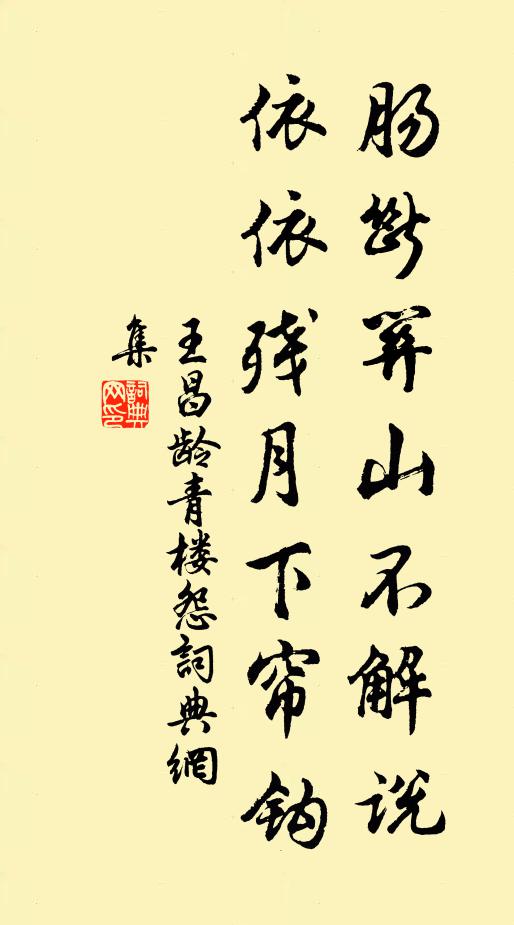 肠断关山不解说
依依残月下帘钩
王昌龄青楼怨詞典網
集
詞典
网印